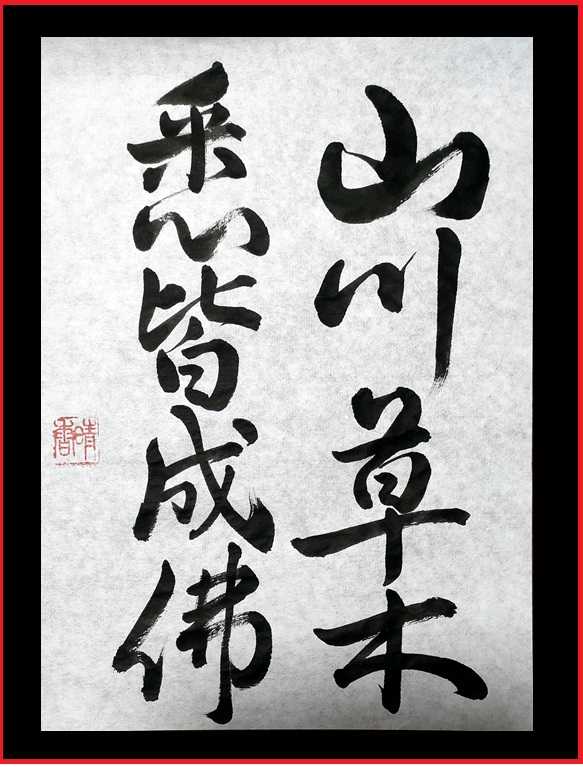 山川草木
悉皆成佛